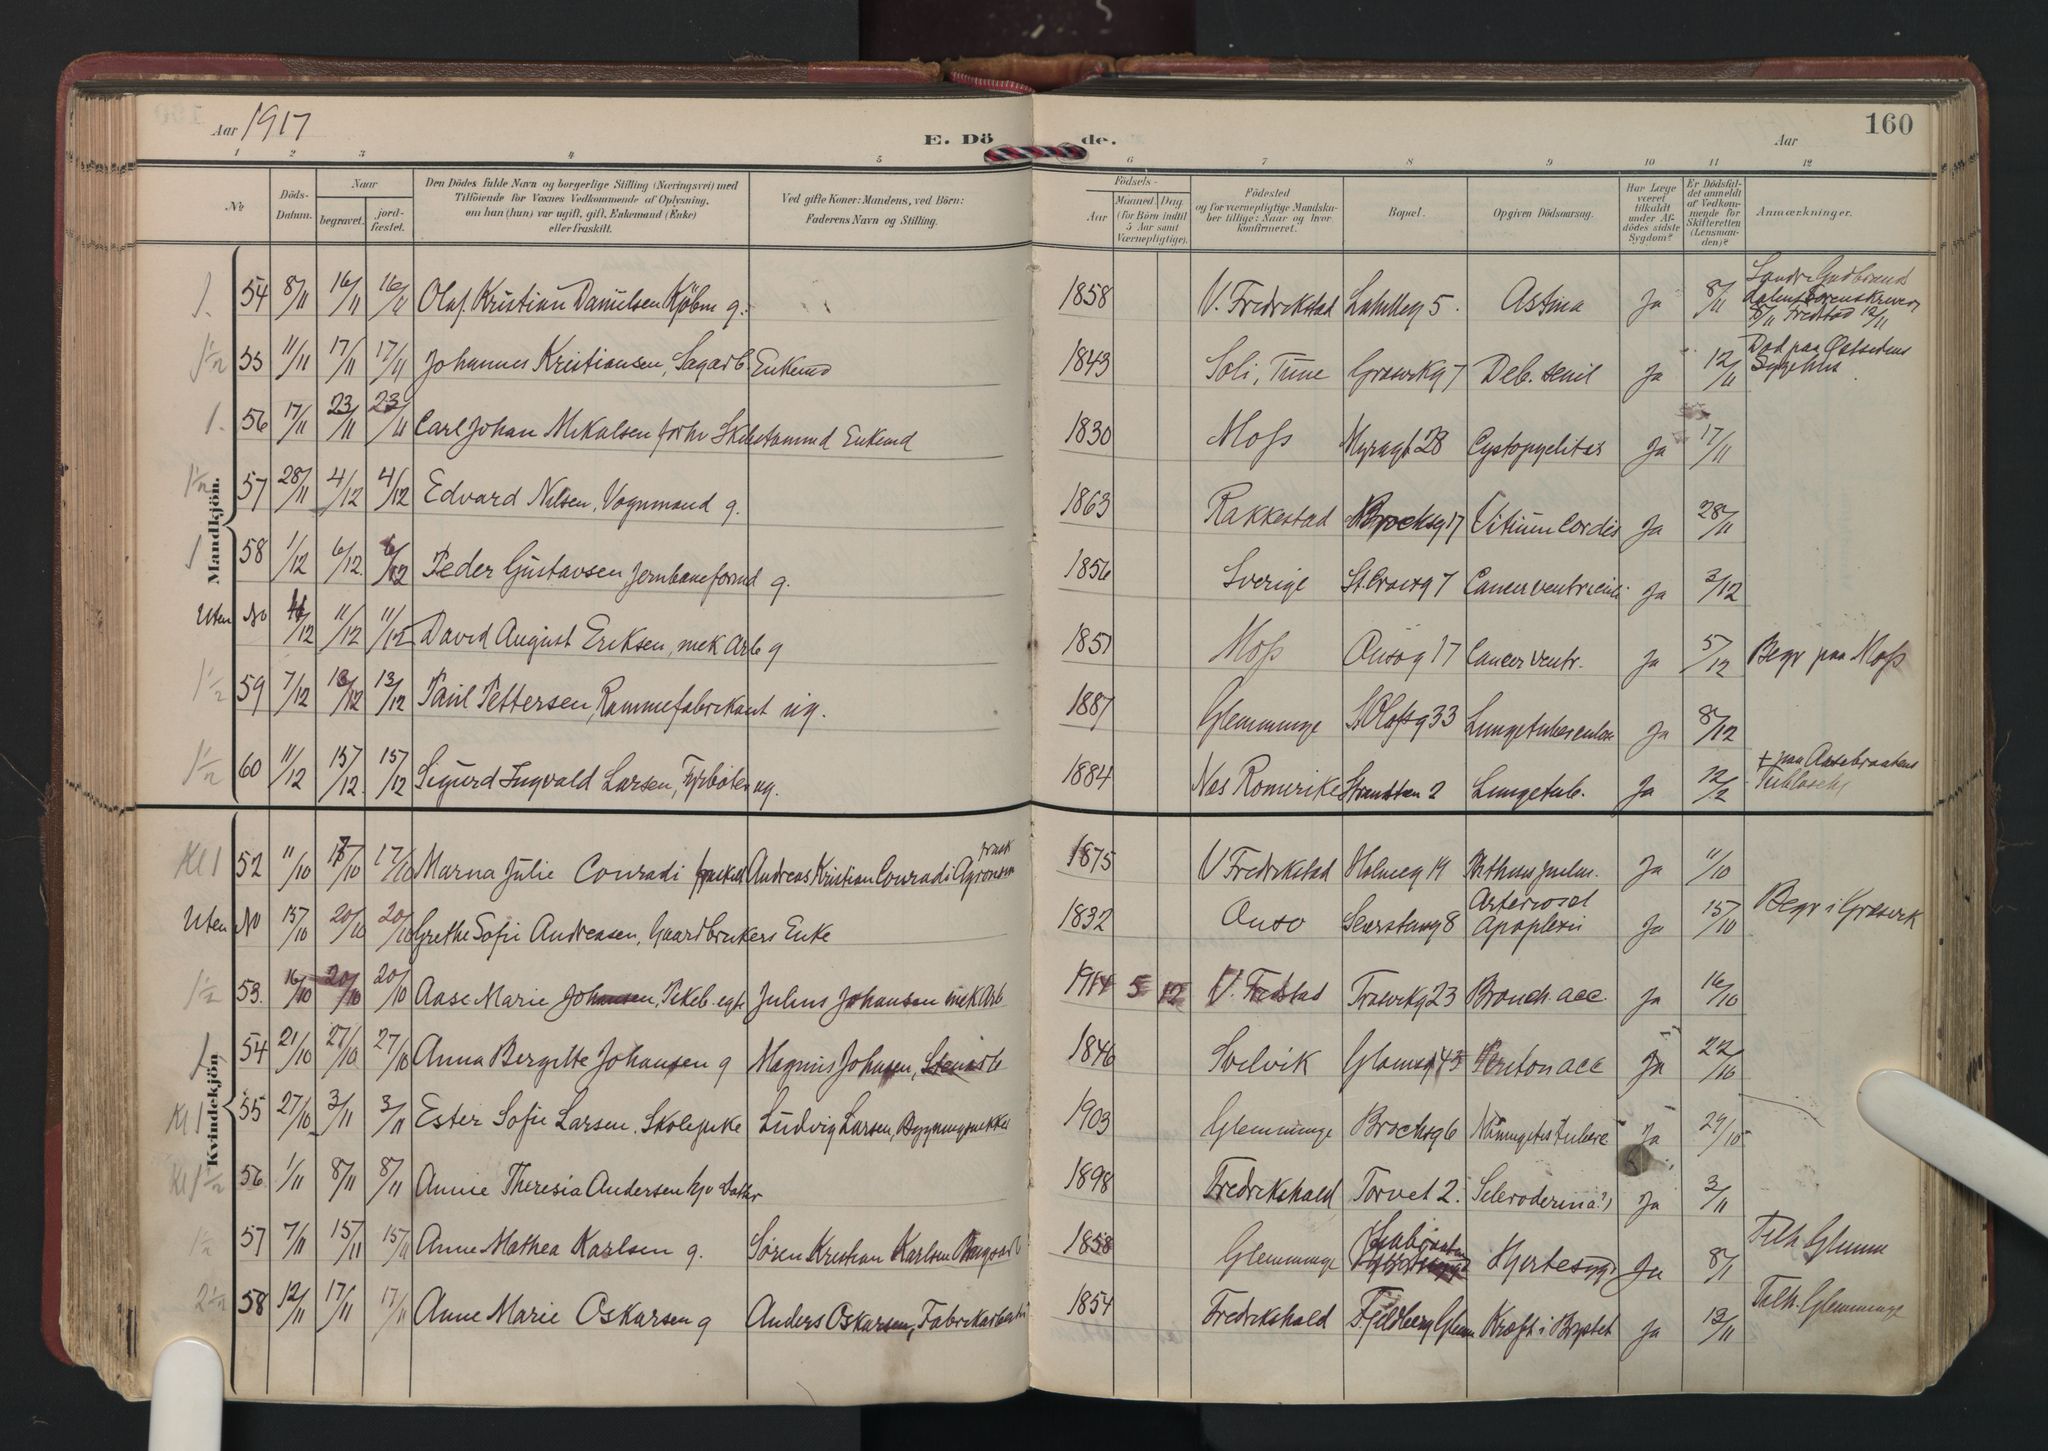 Aar 1917
E. Dö de.
Aar
160
1 2 3 4 5 6 7 8 9 10 11 12
No
Döds-Datum.
Naar
begravet.
jordfæstet.
Den Dödes fulde Navn og borgerlige Stilling (Næringsvei) med
Tilföiende for Voxnes Vedkommende af Oplysning,
om han (hun) var ugift, gift, Enkemand (Enke)
eller fraskilt.
Ved gifte Koner: Mandens, ved Börn:
Faderens Navn og Stilling.
Födsels-
Aar
Maaned. Dag.
(for Börn indtil
5 Aar samt
Værnepligtige).
Födested
og for værnepligtige Mandskaber tillige: Naar og hvor
konfirmeret.
Bopæl.
Opgiven Dödsaarsag.
Har Læge
været
tilkaldt
under Afdödes sidste
Sygdom?
Er Dödsfaldet anmeldt
af Vedkommende for
Skifteretten
(Lensmanden)?
Anmærkninger.
Mandkjön.
1. 54 8/11 16/11 16/11 Olaf Kristian Danielsen Kjøbm g. 1858 V. Fredrikstad 5. Astma Ja 8/11
1 1/2 55 11/11 17/11 17/11 Johannes Kristiansen, Sagarb. Enkemd 1843 Soli, Tune Græsvikg 7 Deb. senil Ja 12/11 Død paa Østsidens Sygehus
1. 56 17/11 23/11 23/11 Carl Johan Mikalsen forhv Enkemd 1830 Moss Myragt 28 Cystopyelitis Ja 17/11
1 1/2 57 28/11 4/12 4/12 Edvard Nilsen, Vognmand g. 1863 Rakkestad Brochsg 17 Vitium Cordis Ja 28/11
1 58 1/12 6/12 6/12 Peder Gustavsen Jernbaneformd g. 1856 Sverige Cancer ventriculi Ja 3/12
Uten No 4/12 11/12 11/12 David August Eriksen, mek Arb g 1851 Moss Onsøg 17 Cancer ventr. Ja 5/12 Begr paa Moss
1 1/2 59 7/12 13/12 13/12 Paul Pettersen, Rammefabrikant ug. 1887 Glemminge St Olafsg 33 Lungetuberculose Ja 8/12
1 1/2 60 11/12 15/12 15/12 Sigurd Ingvald Larsen, Fyrbøter ug. 1884 Nes Romerike 2 Lungetub. Ja 12/12
Kvindekjön
Kl 1 52 11/10 17/10 17/10 Marna Julie Conradi fraskilt Andreas Kristian Conradi Agronom 1875 V Fredrikstad Holmeg 19 Ja 11/10
Uten No 15/10 20/10 20/10 Grethe Sofie Andreasen, Gaardbrukers Enke 1832 Onsø 8 Arterioscl Apoplexi Ja 15/10 Begr i Græsvik
1 1/2 53. 16/10 20/10 20/10 Aase Marie Johansen, Pikeb. egte Julius Johansen mek Arb 1914 5 12 V. Fredstad Trosvikg 23 Bronch. acc. Ja 16/10
1 54 21/10 27/10 27/10 Anna Bergitte Johansen g Magnus Johansen, 1846 Svelvik Glomsg 43 Periton acc Ja 22/10
Kl 1 55 27/10 3/11 3/11 Ester Sofie Larsen, Skolepike Ludvig Larsen, 1903 Glemminge Brochsg 6 Ja 29/10
Kl 1 1/2 56 1/11 8/11 8/11 Anne Theresia Andersen hjv Datter 1898 Fredrikshald Torvet 2. Scleroderma Ja 3/11
1 1/2 57 7/11 15/11 15/11 Anne Mathea Karlsen g. Søren Kristian Karlsen 1858 Glemminge Hjertesygd Ja 8/11 Tilh. Glemm
2 1/2 58 12/11 17/11 17/11 Anne Marie Oskarsen g Anders Oskarsen, Fabrikarbeider 1854 Fredrikshald Fjeldberg Glemm Kræft i Brystet Ja 13/11 Tilh. Glemminge